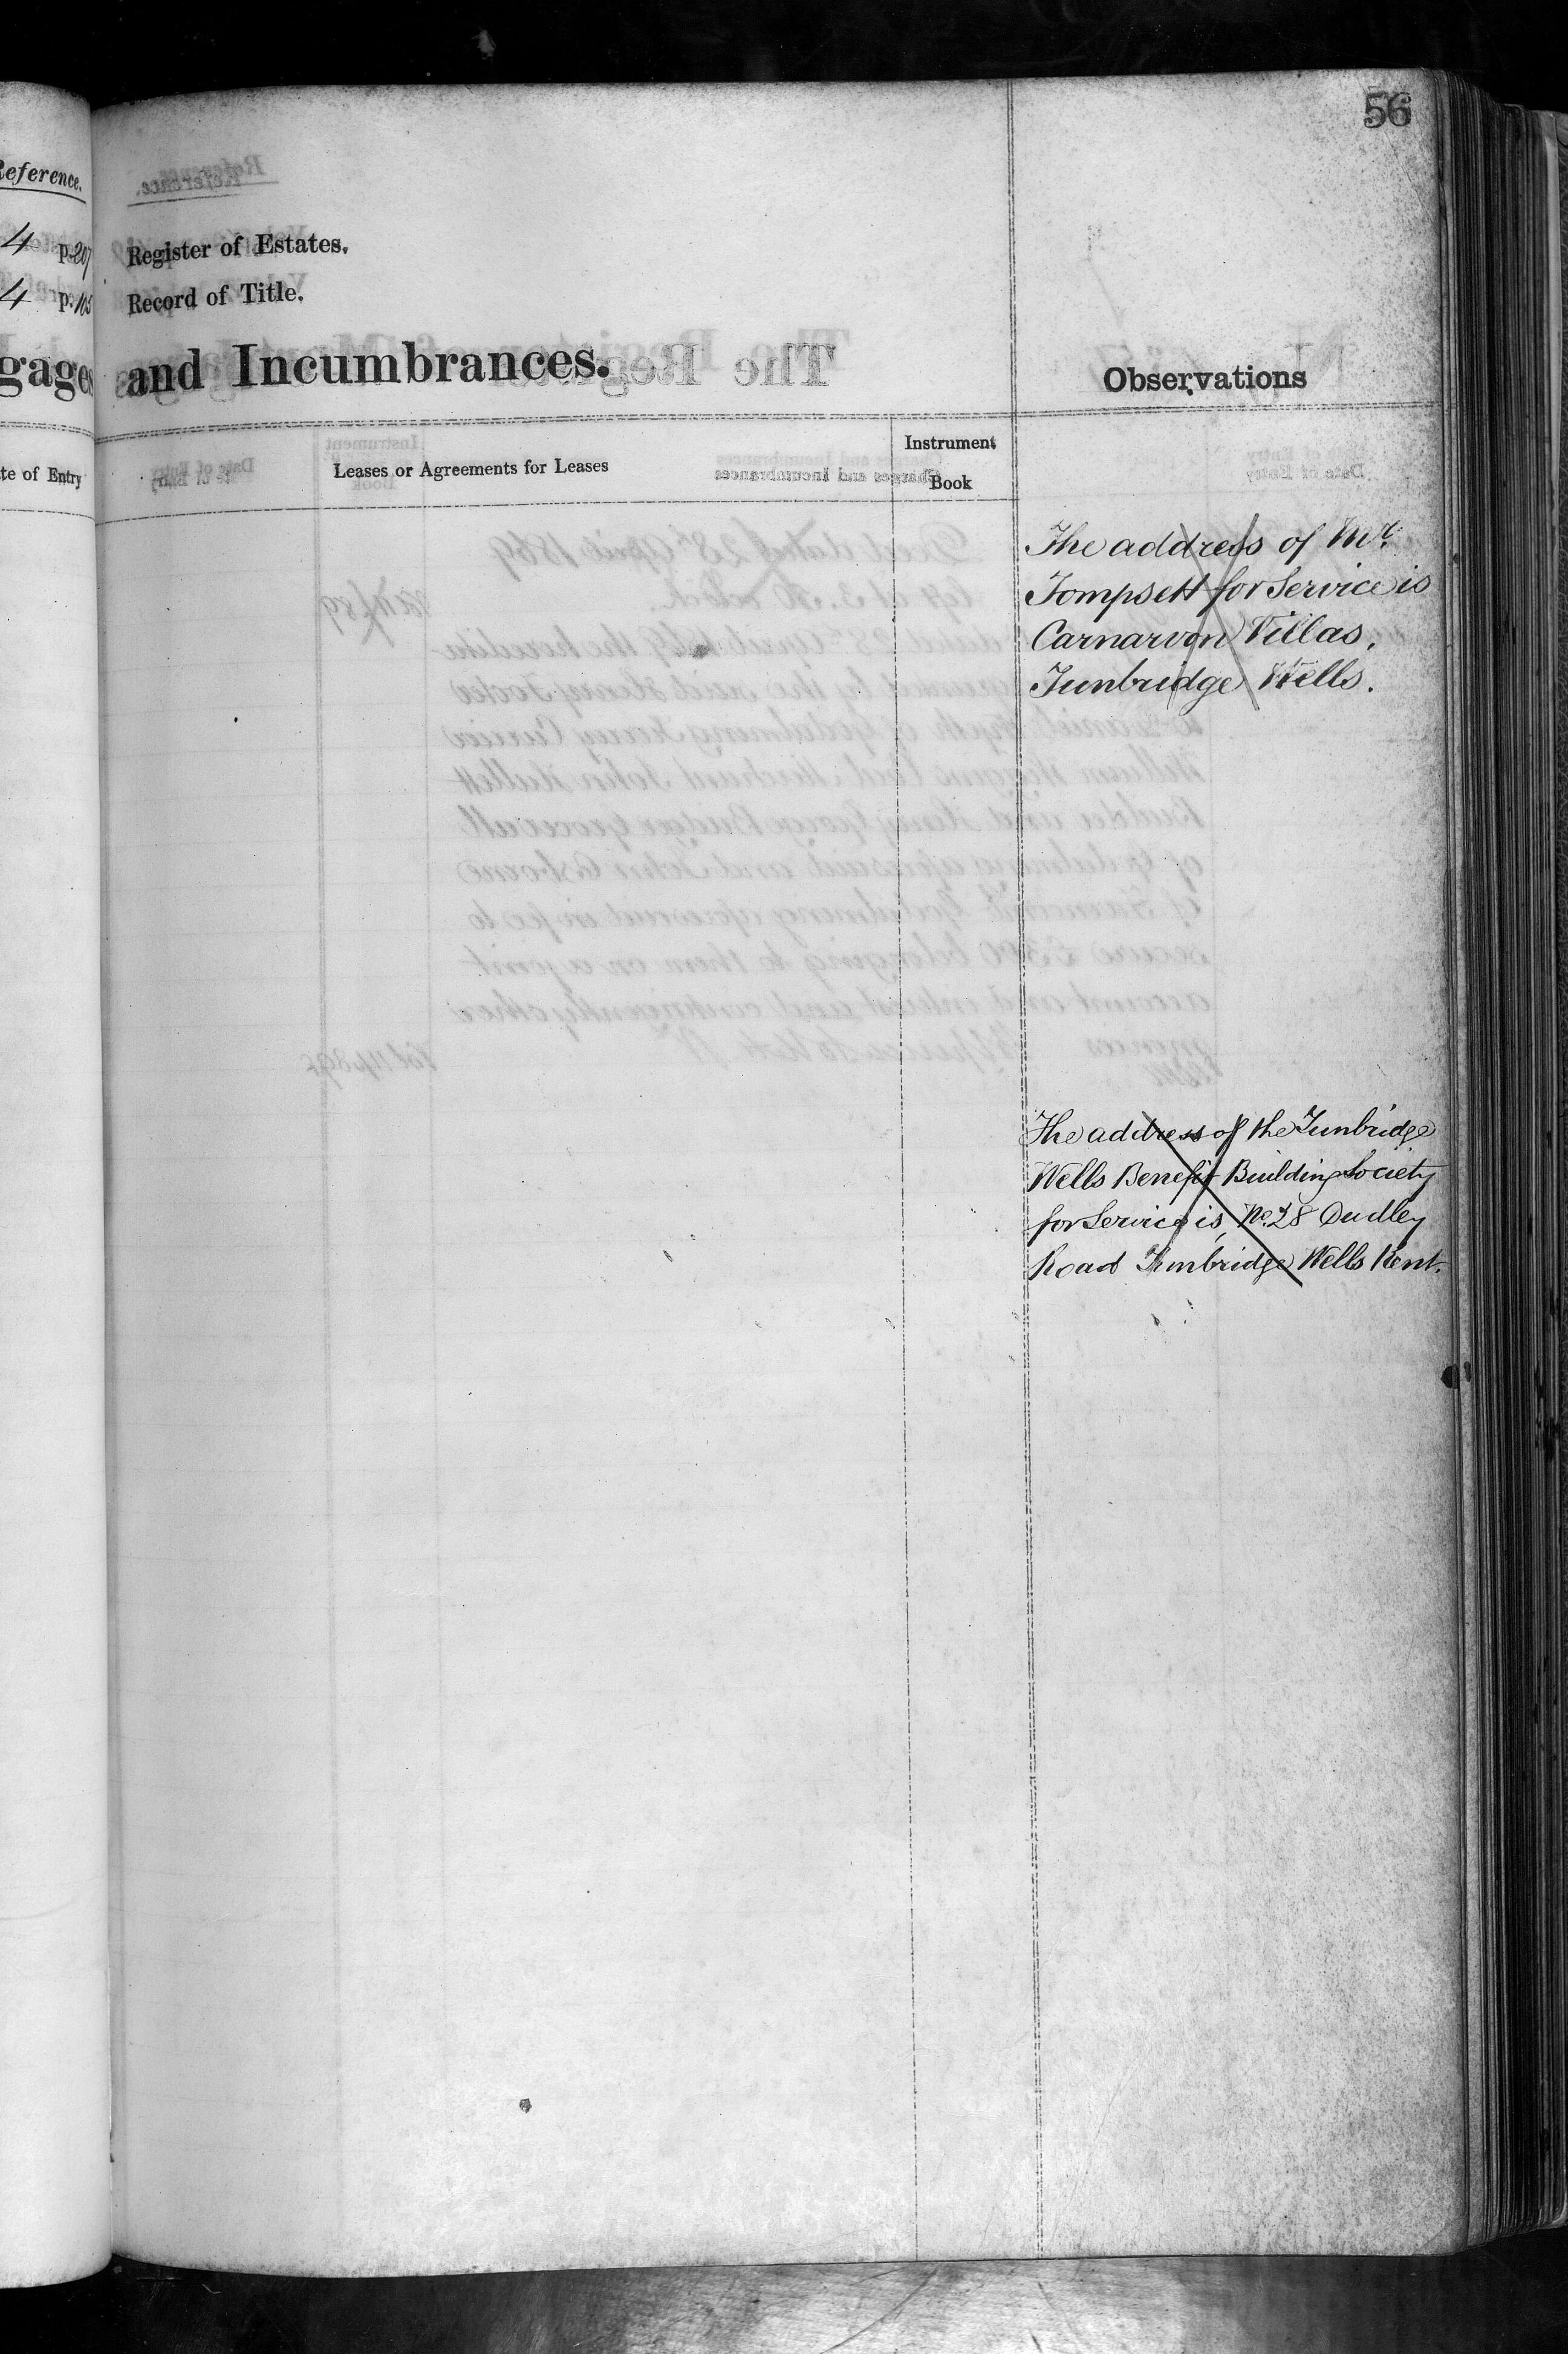 56
Reference.
4 p. 207
4 p. 105
Register of Estates.
Record of Title.
gages and Incumbrances.
Observations
te of Entry
Leases or Agreements for Leases
Instrument
Book
The address of Mr.
Tompsett for Service is
Carnarvon Villas,
Tunbridge Wells.
The address of the Tunbridge
Wells Benefit Building Society
for Service is, No. 28 Dudley
Road Tunbridge Wells Kent.